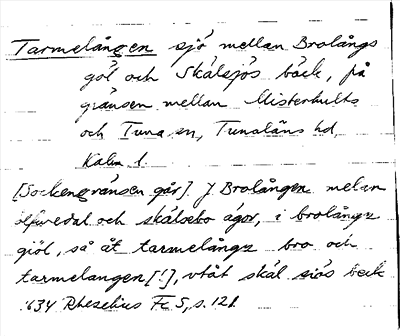 Tarmelången sjö mellan Brolångs
göl och Skälsjös bäck, på
gränsen mellan Misterhults
och Tuna sn, Tunaläns hd,
Kalm. l.
[Sockengränsen går] J Brolången melan
elfwedal och skälsebo ägor, i brolångz
giöl, så åt tarmelångz bro och
tarmelangen [!], vtåt skäl siös beck
1634 Rhezelius Fc 5, s. 121.